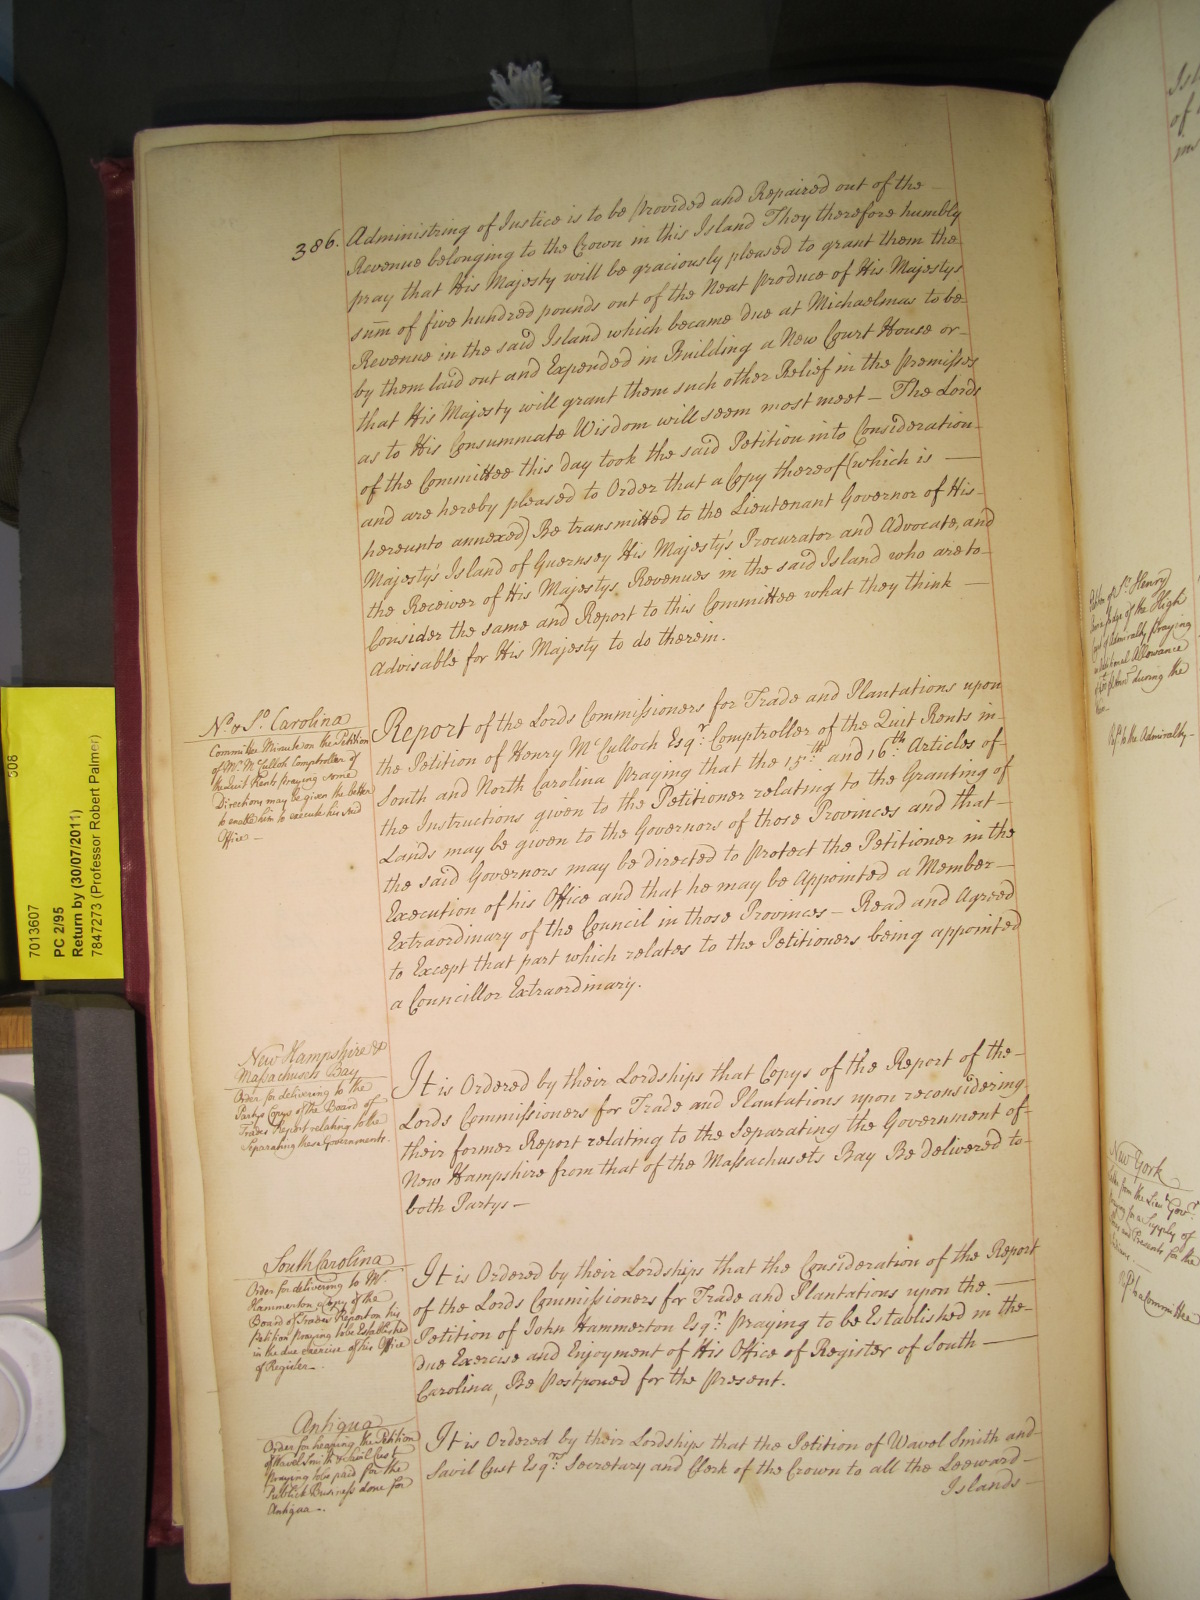 386.
Administring of Justice is to be provided and Repaired out of the
Revenue belonging to the Crown in this Island They therefore humbly
pray that His Majesty will be graciously pleased to grant them the
sum of five hundred pounds out of the Neat produce of His Majestys
Revenue in the said Island which became due at Michaelmas to be
by them laid out and Expended in Building a New Court House or
that His Majesty will grant them such other Relief in the premisses
as to His Consummate Wisdom will seem most meet — The Lords
of the Committee this day took the said Petition into Consideration
and are hereby pleased to Order that a Copy thereof (which is —
hereunto annexed) Be transmitted to the Lieutenant Governor of His
Majesty's Island of Guernsey His Majesty's Procurator and Advocate, and
the Receiver of His Majestys Revenues in the said Island who are to
Consider the same and Report to this Committee what they think —
Advisable for His Majesty to do therein.
No. & So. Carolina
Committee Minute on the Petition
of Mr. McCulloh Comptroller of
the Quit Rents praying some
Directions may be given the better
to enable him to execute his said
Office —
Report of the Lords Commissioners for Trade and Plantations upon
the Petition of Henry McCulloch Esqr. Comptroller of the Quit Rents in
South and North Carolina praying that the 15th and 16th Articles of
the Instructions given to the Petitioner relating to the Granting of
Lands may be given to the Governors of those Provinces and that
the said Governors may be directed to protect the Petitioner in the
Execution of his Office and that he may be Appointed a Member
Extraordinary of the Council in those Provinces — Read and Agreed
to Except that part which relates to the Petitioners being appointed
a Councillor Extraordinary.
New Hampshire &
Massachusets Bay
Order for delivering to the
Partys Copys of the Board of
Trades Report relating to the
Separating these Governments.
It is Ordered by their Lordships that Copys of the Report of the
Lords Commissioners for Trade and Plantations upon reconsidering
their former Report relating to the Separating the Government of
New Hampshire from that of the Massachusets Bay Be delivered to
both Partys —
South Carolina
Order for delivering to Mr.
Hammerton a Copy of the
Board of Trades Report on his
petition praying to be Established
in the due Exercise of his Office
of Register —
It is Ordered by their Lordships that the Consideration of the Report
of the Lords Commissioners for Trade and Plantations upon the —
Petition of John Hammerton Esqr. praying to be Established in the
due Exercise and Enjoyment of His Office of Register of South —
Carolina, Be postponed for the present.
Antigua
Order for hearing the Petition
of Wavel Smith & Savil Cust
praying to be paid for the
Publick Business done for
Antigua —
It is Ordered by their Lordships that the Petition of Wavel Smith and
Savil Cust Esqrs. Secretary and Clerk of the Crown to all the Leeward
Islands
508
7013607
PC 2/95
Return by (30/07/2011)
7847273 (Professor Robert Palmer)
of Sr. Henry
Judge of the High
Court of Admiralty praying
Allowance
during the
to the Admiralty
New York
from the Lieut. Govr.
praying for a Supply of
and Presents for the
to a Committee